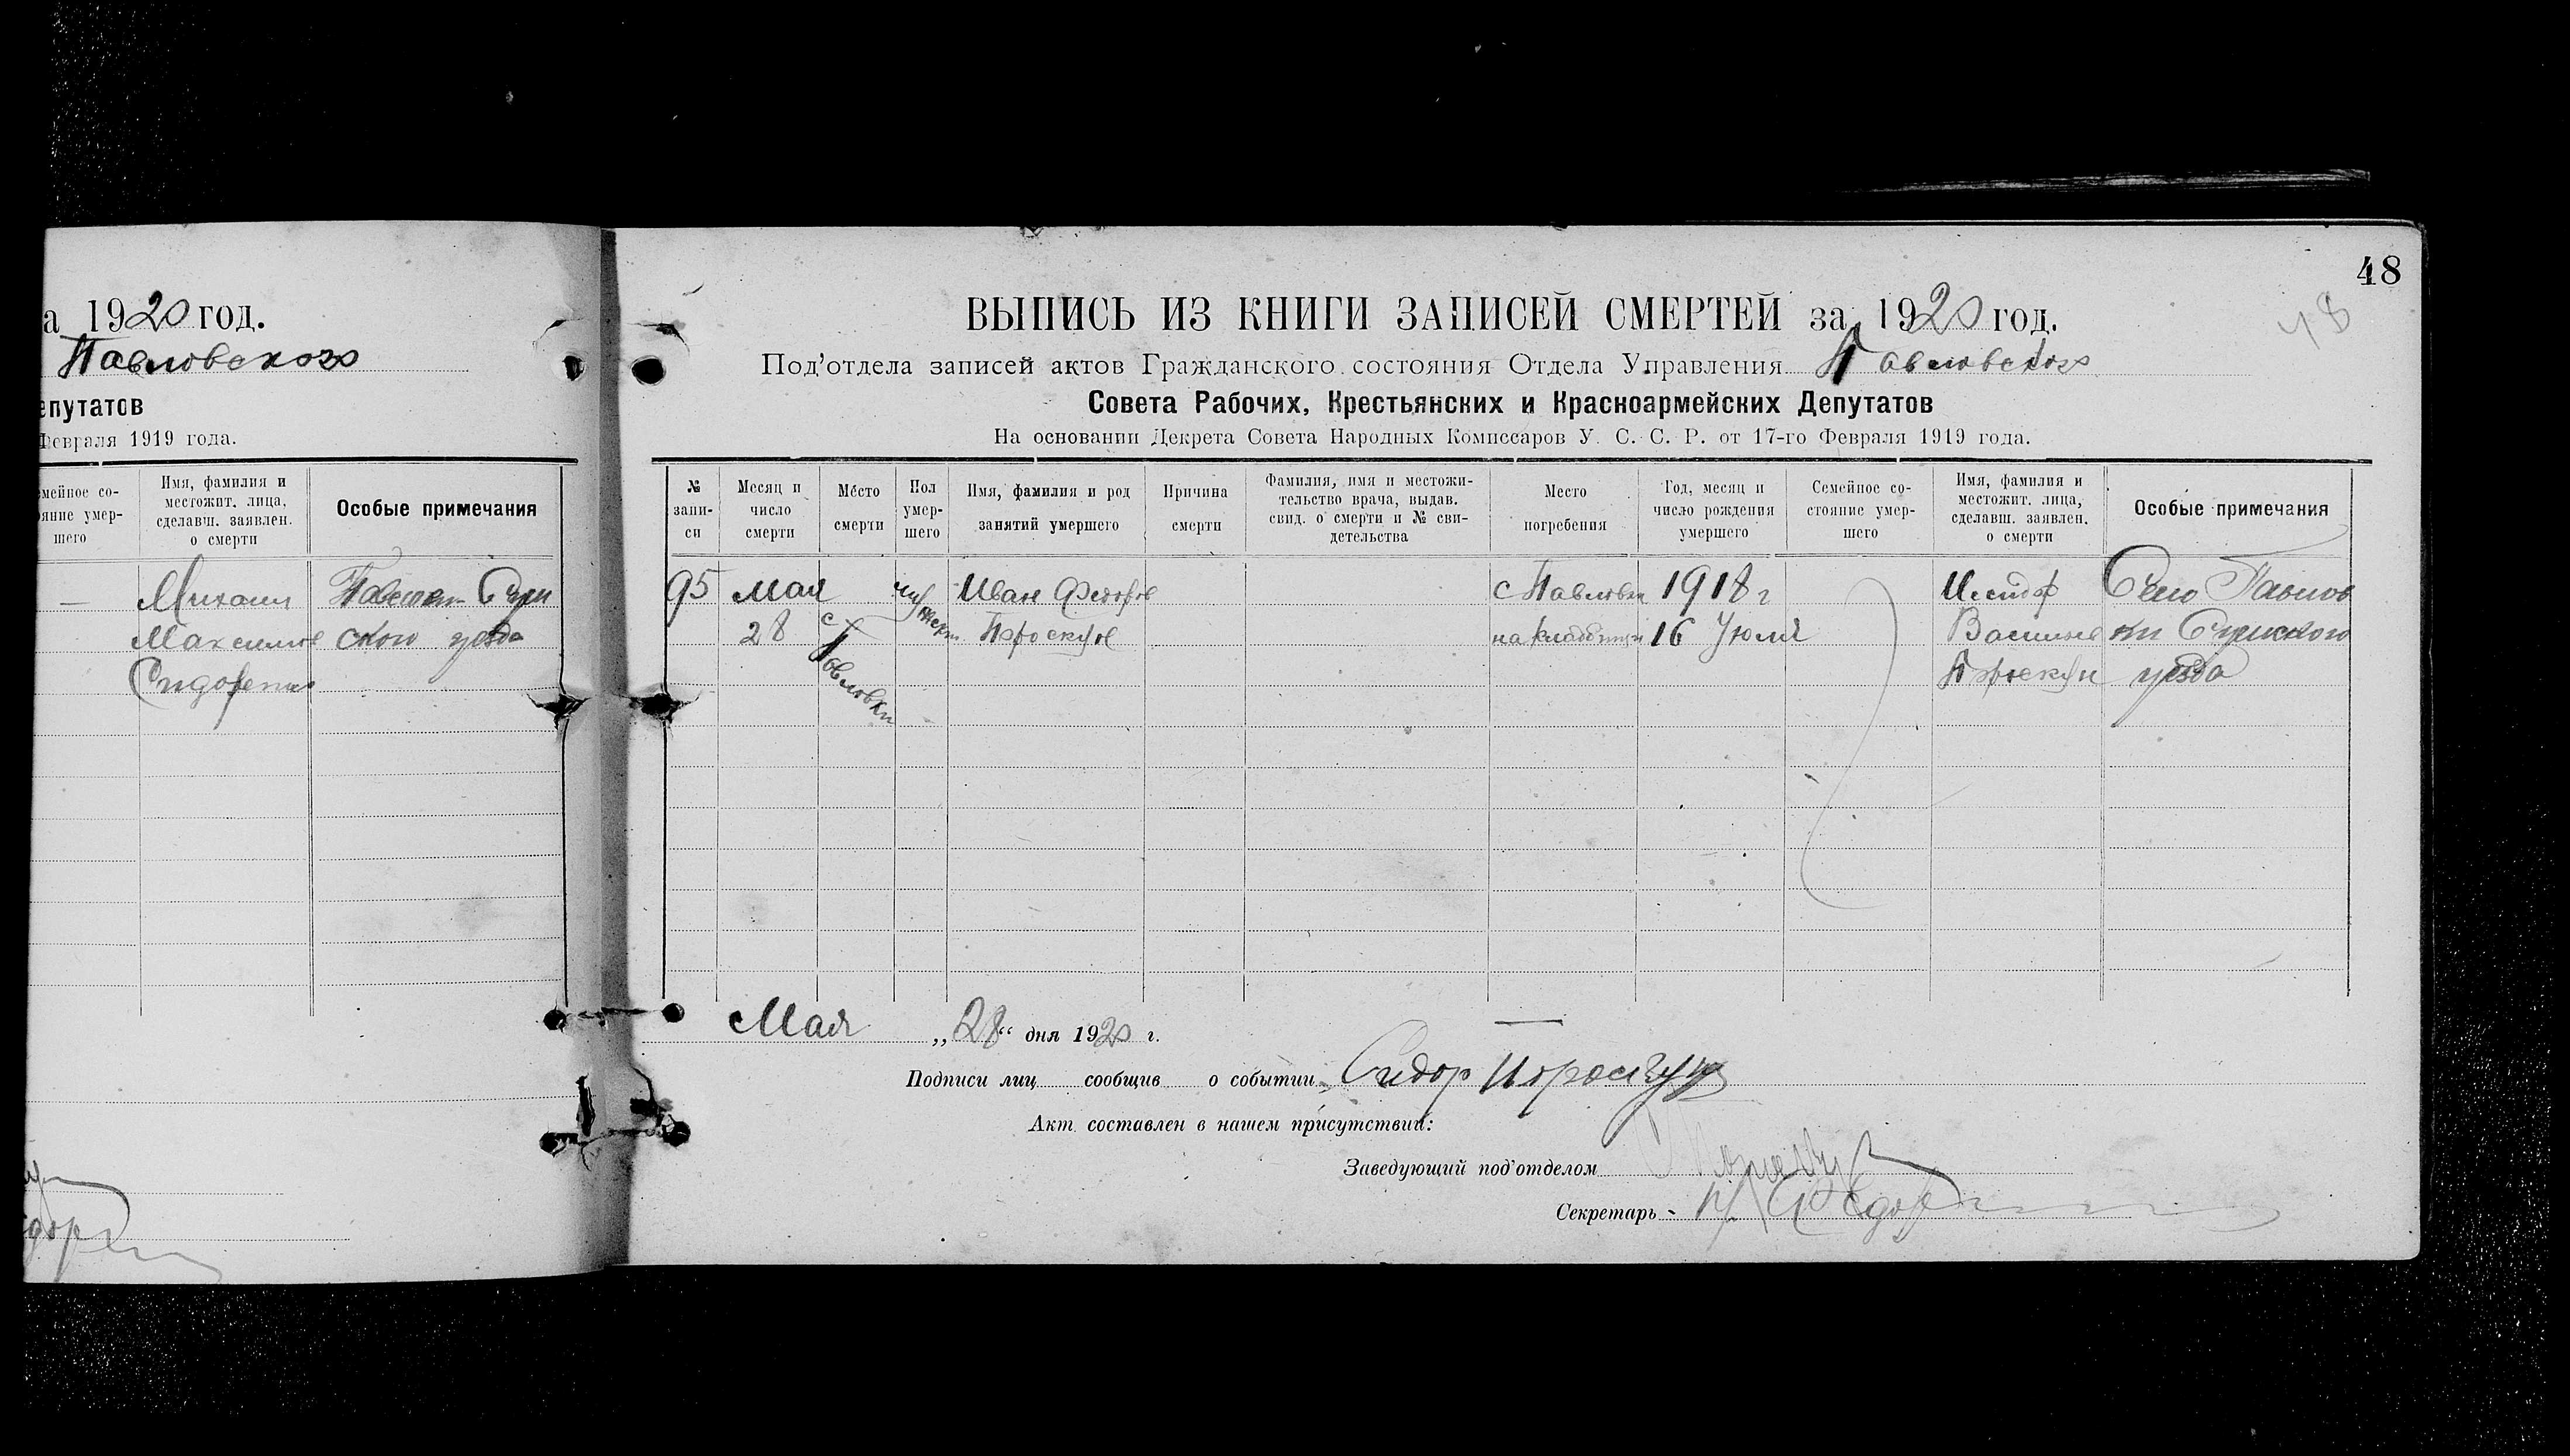 а 1920 год.
Павловского
епутатов
Февраля 1919 года.
мейное со-
яние умер-
шего
Имя, фамилия и
местожит. лица,
сделавш. заявлен.
о смерти
Особые примечания
—
Михаил
Максимов
Сидоренко
Павловки Сум
ского уезда
48
48
ВЫПИСЬ ИЗ КНИГИ ЗАПИСЕЙ СМЕРТЕЙ за 1920 год.
Под'отдела записей актов Гражданского состояния Отдела Управления Павловского
Совета Рабочих, Крестьянских и Красноармейских Депутатов
На основании Декрета Совета Народных Комиссаров У. С. С. Р. от 17-го Февраля 1919 года.
№
запи-
си
Месяц и
число
смерти
Место
смерти
Пол
умер-
шего
Имя, фамилия и род
занятий умершего
Причина
смерти
Фамилия, имя и местожи-
тельство врача, выдав.
свид. о смерти и № сви-
детельства
Место
погребения
Год, месяц и
число рождения
умершего
Семейное со-
стояние умер-
шего
Имя, фамилия и
местожит. лица,
сделавш. заявлен.
о смерти
Особые примечания
95
Мая
28
с
Павловки
Иван Федоров
Проскун
с Павловки
на кладбищи
1918 г
16 Июля
Васильев
Проскун
Село Павлов
ки Сумского
уезда
Мая „28“ дня 1920 г.
Подписи лиц сообщив о событии Сидор
Акт составлен в нашем присутствии:
Заведующий под'отделом
Секретарь